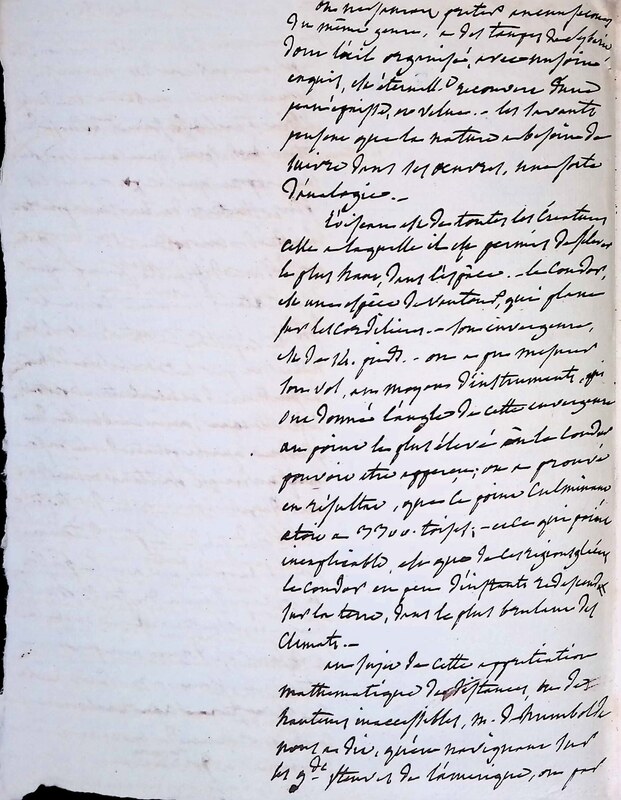 du même genre, a des taupes de Sibérie
dont l'œil organisé, avec un soin
exquis, est éternell.t recouvert d'une
peau épaisse, et velue. - les savants
pensent que la nature a besoin de
suivre dans ses œuvres, une sorte
d'analogie. -
L'oiseau est de toutes les créatures
celle a laquelle il est permis de s'élever
le plus haut, dans l'espace. - le condor,
est une espèce de vautour, qui plane
sur les cordilières. - son envergeure,
est de 14. pieds. - on a pu mesurer
son vol, au moyen d'instruments, qui
ont donné l'angle de cette envergeure
au point le plus élevé où le condor
pouvoit etre apperçu; on a prouvé
en résultat, que ce point culminant
etoit a 3300. toises; - et ce qui paroit
inexplicable, est que de ces régions glacées
le condor en peu d'instants redescend
sur la terre, dans le plus brulant des
climats. -
au sujet de cette appréciation
mathématique des distances, ou des
hauteurs inaccessibles, m. de humboldt
nous a dit, qu'en navignant sur
les g.ds fleuves de l'amérique, on